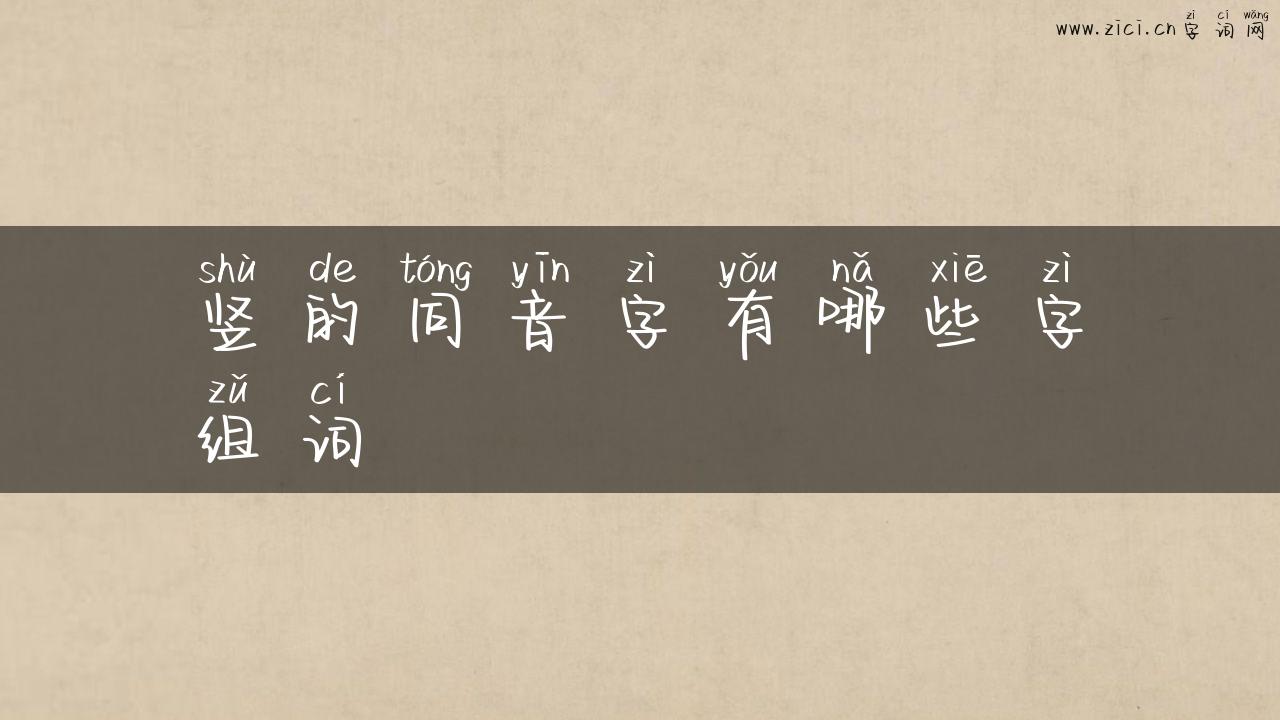 zì cí wǎng
www.zici.cn 字词网
shù de tóng yīn zì yǒu nǎ xiē zì
竖的同音字有哪些字
zǔ cí
组词